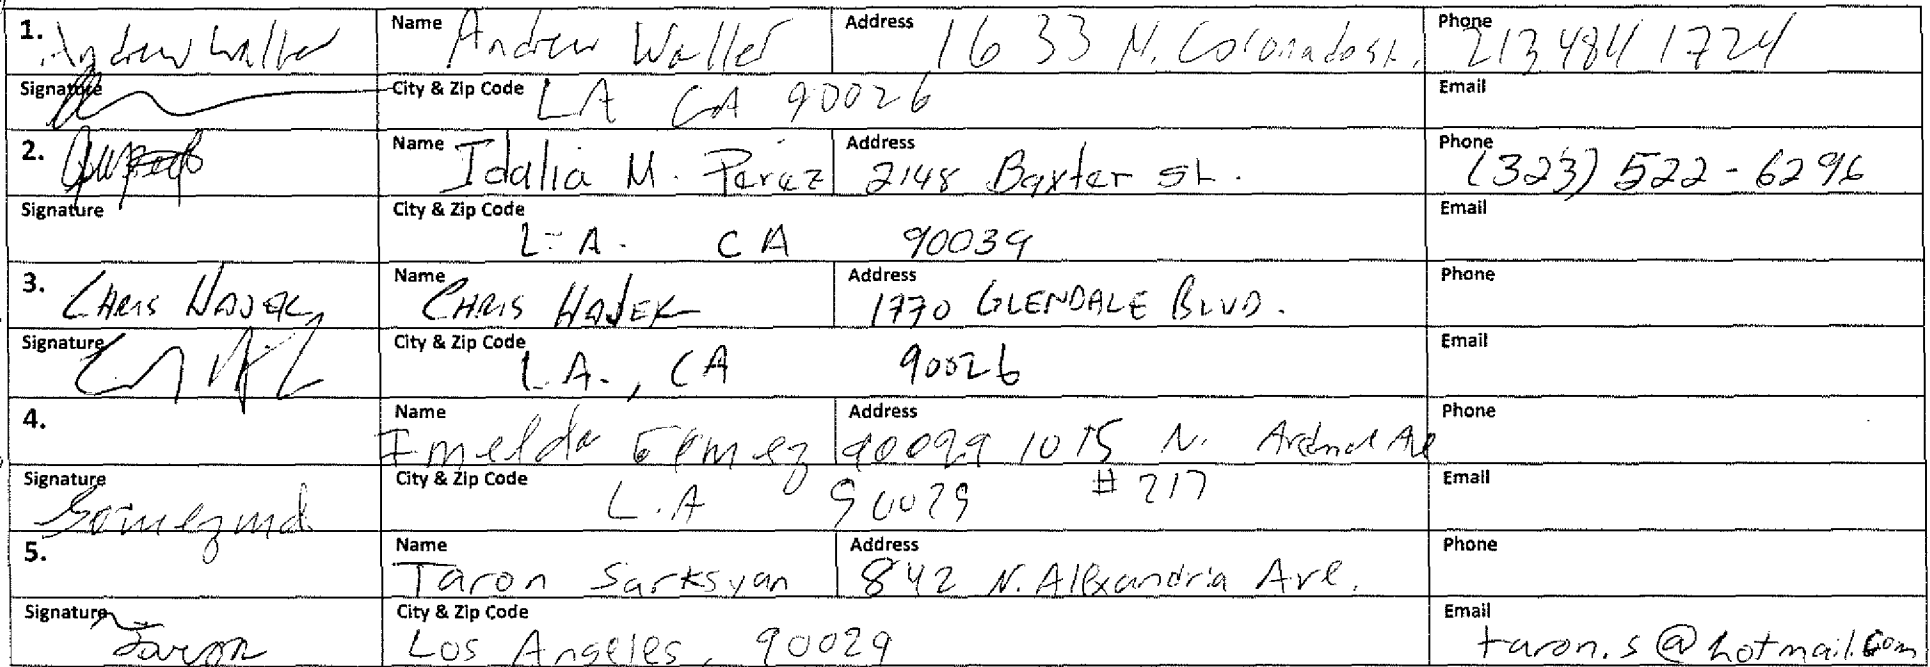 1. Andrew Waller Name Andrew Waller Address 1633 N. Coronado st. Phone 213 484 1724
Signature City & Zip Code LA CA 90026 Email
2. Name Idalia M. Perez Address 2148 Baxter St. Phone (323) 522-6296
Signature City & Zip Code L.A. CA 90039 Email
3. CHRIS HAJEK Name CHRIS HAJEK Address 1770 GLENDALE BLVD. Phone
Signature City & Zip Code L.A., CA 90026 Email
4. Name Imelda Gomez Address 90029 1015 N. Ave Phone
Signature City & Zip Code L.A 90029 #217 Email
5. Name Taron Sarksyan Address 842 N. Alexandria Ave. Phone
Signature Taron City & Zip Code Los Angeles, 90029 Email taron.s@hotmail.com